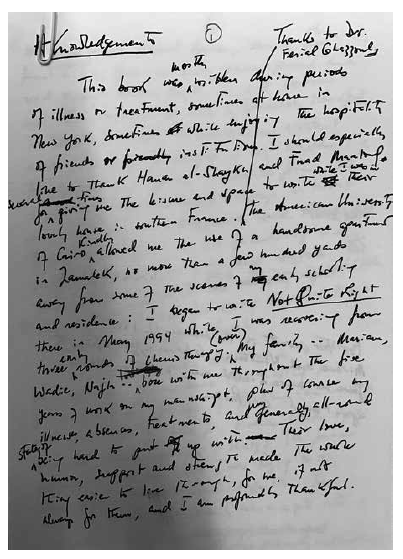 Acknowledgements
①
Thanks to Dr.
Ferial Ghazoul
mostly
This book was written during periods
of illness or treatment, sometimes at home in
New York, sometimes while enjoying the hospitality
of friends or institutions. I should especially
like to thank Hanan al-Shaykh and Fouad
for giving me the leisure and space to write while I was in their
lovely house in southern France. The American University
of Cairo kindly allowed me the use of a handsome apartment
in Zamalek, no more than a few hundred yards
away from some of the scenes of my early schooling
and residence: I began to write Not Quite Right
there in May 1994 while I was recovering from
three early rounds of chemotherapy. (over) My family -- Mariam,
Wadie, Najla -- bore with me throughout the five
years of work on my manuscript, plus of course my
illnesses, absences, treatments, and my generally all-round
state of being hard to put up with. Their love,
humor, support and strength made the whole
thing easier to live through, for me if not
always for them, and I am profoundly thankful.